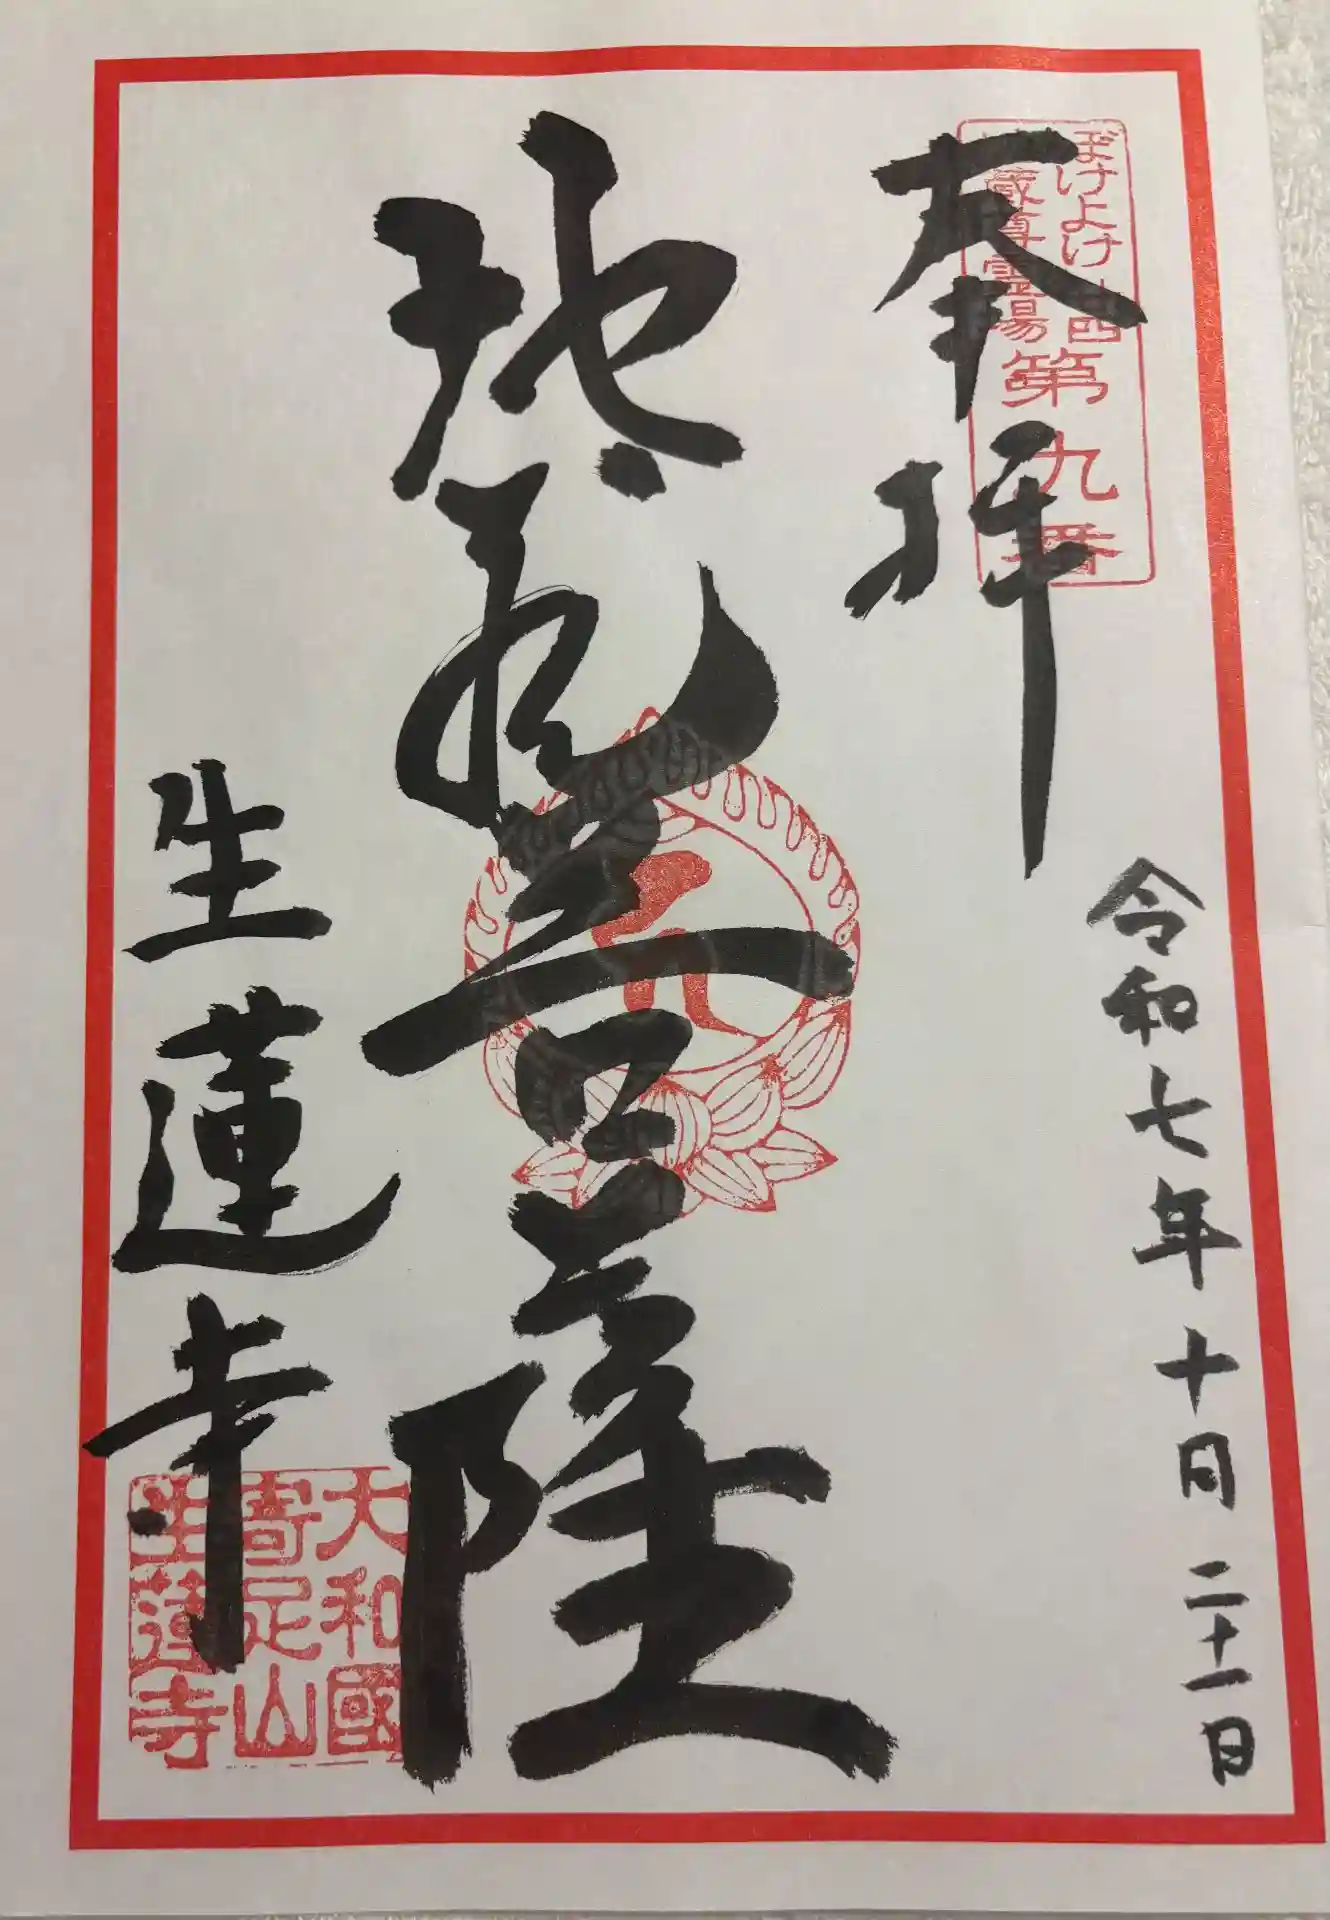 奉拝
ぼけよけ
蔵尊霊場
第九番
令和七年十月二十一日
地蔵菩薩
生蓮寺
大和國
寄足山
生蓮寺